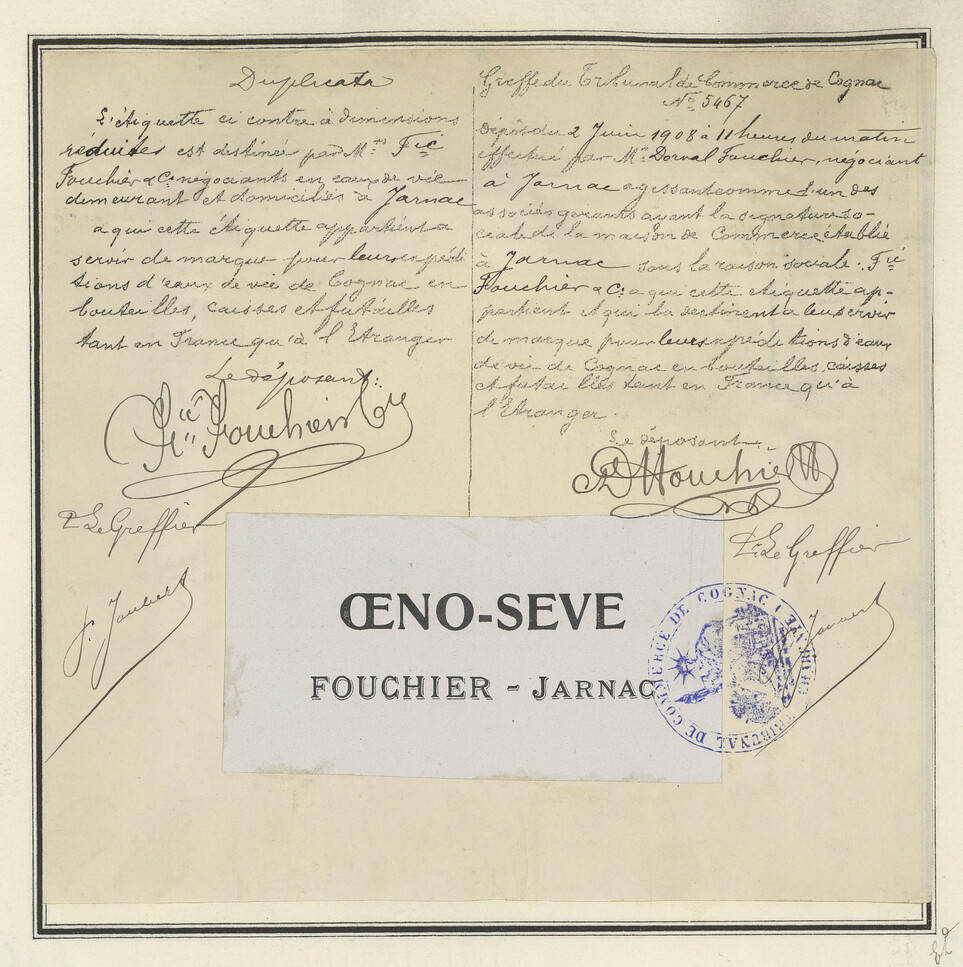 Duplicata
L'étiquette ci contre à dimensions
réduites est destinée par Mrs Fic
Fouchier & Cie négociants en eaux de vie
demeurant et domiciliés à Jarnac
a qui cette étiquette appartient a
servir de marque pour leurs expédi
tions d'eaux de vie de Cognac en
bouteilles, caisses et futailles
tant en France qu'à l'Etranger
Le déposant:
Fic Fouchier & Cie
Pr Le Greffier
J. Joubert
Greffe du Tribunal de Commerce de Cognac
No 5467
Dépôt du 2 Juin 1908 à 11 heures du matin
effectué par Mr Dorval Fouchier, négociant
à Jarnac agissant comme l'un des
associés gerants ayant la signature so-
ciale de la maison de Commerce établie
à Jarnac sous la raison sociale. Fic
Fouchier & Cie a qui cette étiquette ap-
partient et qui la destinent a leur servir
de marque pour leurs expéditions d'eaux
de vie de Cognac en bouteilles, caisses
et futailles tant en France qu'à
l'Etranger.
Le déposant.
Fouchier
Pr Le Greffier
ŒNO-SEVE
FOUCHIER - JARNAC
TRIBUNAL DE COMMERCE DE COGNAC